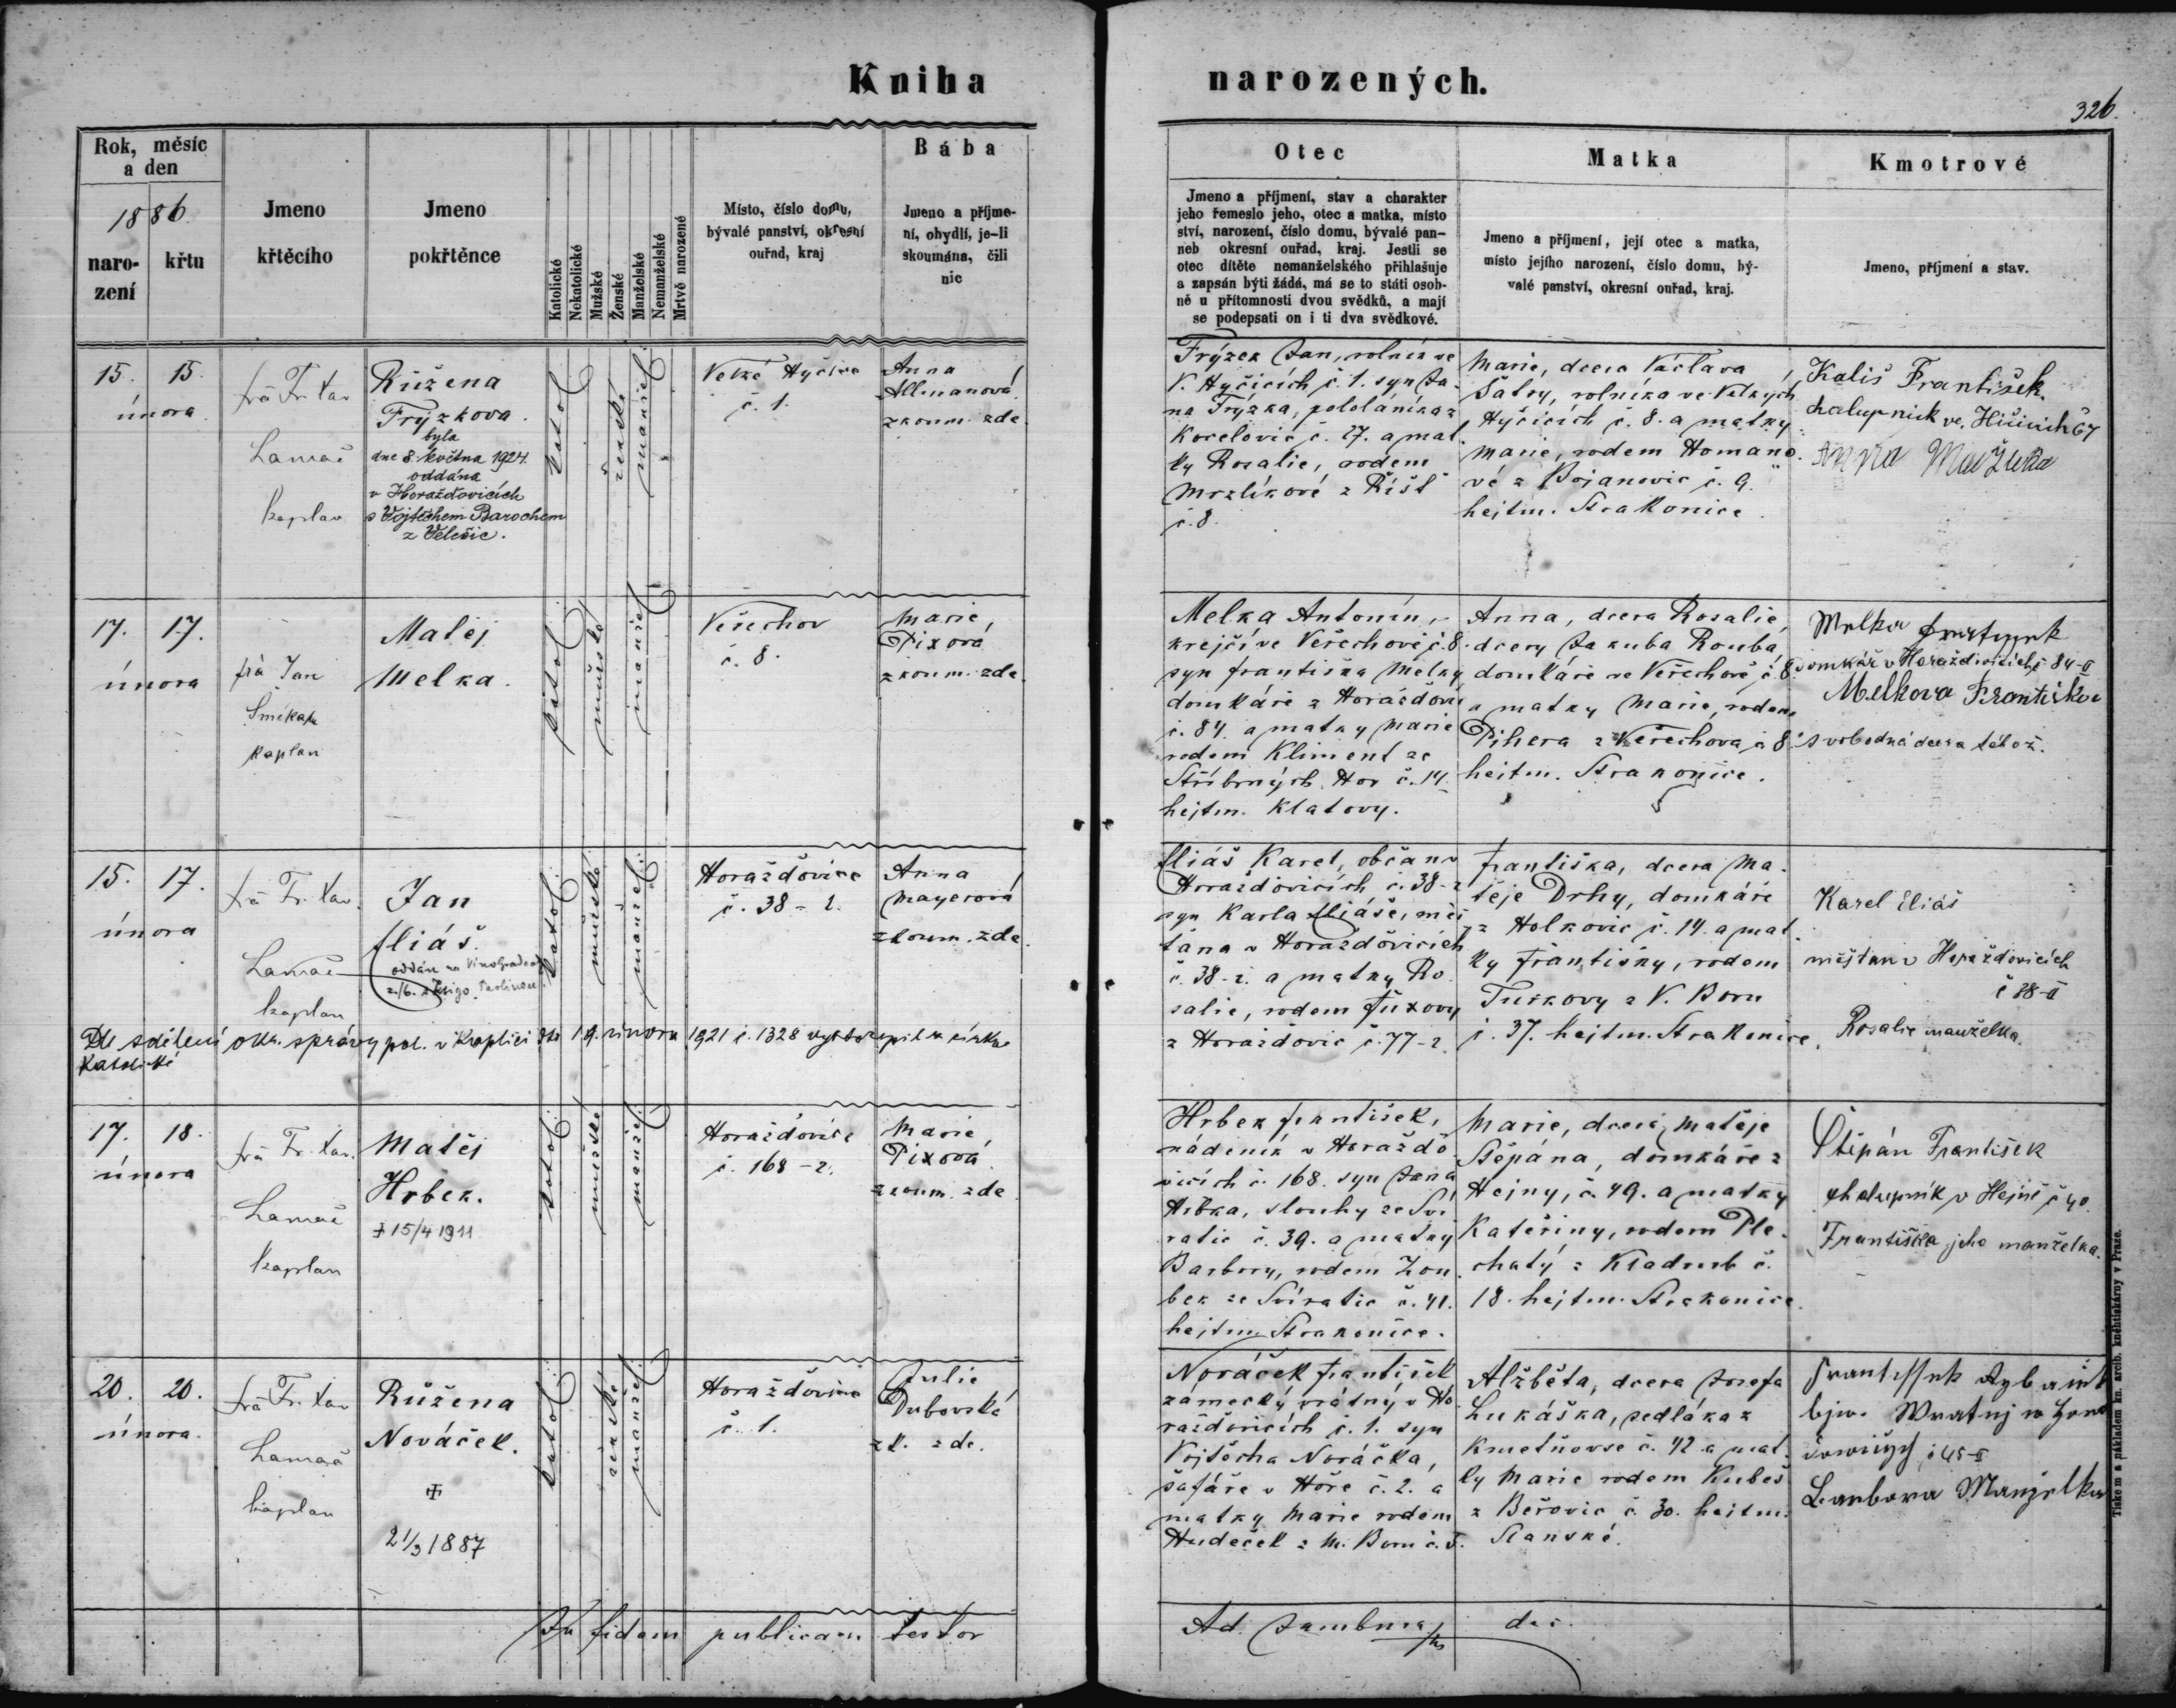 Kniha narozených.
326.
Rok, měsíc
a den
1886
naro-
zení
křtu
Jmeno
křtěcího
Jmeno
pokřtěnce
Katolické
Nekatolické
Mužské
Ženské
Manželské
Nemanželské
Mrtvě narozené
Místo, číslo domu,
bývalé panství, okresní
ouřad, kraj
Bába
Jmeno a příjme-
ní, obydlí, je-li
skoumána, čili
nic
Otec
Jmeno a příjmení, stav a charakter
jeho řemeslo jeho, otec a matka, místo
ství, narození, číslo domu, bývalé pan-
neb okresní ouřad, kraj. Jestli se
otec dítěte nemanželského přihlašuje
a zapsán býti žádá, má se to státi osob-
ně u přítomnosti dvou svědků, a mají
se podepsati on i ti dva svědkové.
Matka
Jmeno a příjmení, její otec a matka,
místo jejího narození, číslo domu, bý-
valé panství, okresní ouřad, kraj.
Kmotrové
Jmeno, příjmení a stav.
15. 15.
února
Fr. Xav
Lamač
kaplan
Růžena
Frýzkova.
byla
dne 8. května 1924.
oddána
v Horažďovicích
s Vojtěchem Barochem
z Velešic.
katol
ženské
manžel
Velké Hyčice
č. 1.
Anna
Allmanová
zkoum. zde
Frýzek Jan, rolník ve
V. Hyčicích č. 1. syn Ja-
na Frýzka, pololáníka z
Kocelovic č. 27. a mat
ky Rosalie, rodem
Mrzlíkové z Říšť
č. 8.
Marie, dcera Václava
Šatry, rolníka ve Velkých
Hyčicích č. 8. a matky
Marie, rodem Homano-
vé z Bojanovic č. 9.
hejtm. Strakonice
Kališ František
chalupnick ve
17. 17.
února
Jan
Smékal
kaplan
Matěj
Melka.
katol
mužské
manžel
Veřechov
č. 8.
Marie
Pixová
zkoum. zde
Melka Antonín,
krejčí ve Veřechově č. 8.
syn Františka Melky
domkáře z Horažďovic
č. 84. a matky Marie
rodem Kliment ze
Stříbrných Hor č. 14.
hejtm. Klatovy.
Anna, dcera Rosalie,
dcery Jakuba Rouba,
domkáře ve Veřechově č. 8.
a matky Marie, rodem
Pihera z Veřechova č. 8
hejtm. Strakonice.
Melka
domkář v Horaždovicích č. 84-II
Melkova Františka
svobodná dcera téhož.
15. 17.
února
Fr. Xav.
Lamač
kaplan
Jan
Eliáš.
oddán na Vinohradech
katol
mužské
manžel
Horažďovice
č. 38-2.
Anna
Mayerová
zkoum. zde
Dle sdělení okr. správy pol. v Kaplici dto 19. února 1921 č. 1328 vystoupil z církve
katolické
Eliáš Karel, občan v
Horažďovicích č. 38-2
syn Karla Eliáše, měš
ťana v Horažďovicích
č. 38-2. a matky Ro
salie, rodem Fuxovy
z Horažďovic č. 77-2.
Františka, dcera Ma-
těje Drhy, domkáře
z Holkovic č. 14. a mat
ky Františky, rodem
Tuškovy z V. Boru
č. 37. hejtm. Strakonice.
Karel Eliáš
měšťan v Horažďovicích
č 38-II
Rosalie manželka.
17. 18.
února
Fr. Xav.
Lamač
kaplan
Matěj
Hrbek.
‡ 15/4 1911
katol
mužské
manžel
Horažďovice
č. 168-2.
Marie
Pixová
zkoum. zde
Hrbek František,
nádeník v Horaždo
vicích č. 168. syn Jana
Hrbka, slouhy ze Svi
ratic č. 39. a matky
Barbory, rodem Zou
bek ze Sviratic č. 41.
hejtm. Strakonice.
Marie, dcera Matěje
Štěpána, domkáře z
Hejny, č. 49. a matky
Kateřiny, rodem Ple-
chatý z Kladrub č.
18. hejtm. Strakonice.
Štěpán František
chalupník v Hejné č 40.
Františka jeho manželka.
20. 20.
února.
Fr. Xav
Lamač
kaplan
Růžena
Nováček.
‡
21/3 1887
katol
ženské
manžel
Horažďovice
č. 1.
Julie
Dubovská
zk. zde.
Nováček František
zámecký vrátný v Ho
ražďovicích č. 1. syn
Vojtěcha Nováčka,
šafáře v Hoře č. 2. a
matky Marie rodem
Hudeček z M. Boru č. 5.
Alžběta, dcera Josefa
Lukáška, sedláka z
Kmetňovse č. 42 a mat-
ky Marie rodem Kubeš
z Beřovic č. 30. hejtm.
Slanské.
Barbora Manželka
In fidem publicam testor
Ad. Jambura dec.
Tiskem a nákladem kn. arcib. knihtiskárny v Praze.